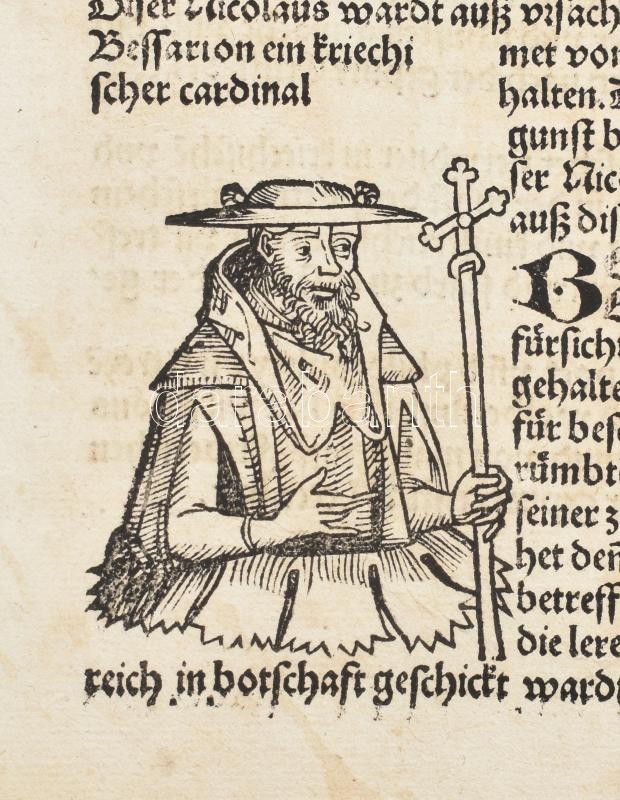 Diser Nicolaus wardt auß vrsach
Bessarion ein kriechi
scher cardinal
met von
halten.
gunst b
ser Nic
auß dis
B
fürsich
gehalte
für bes
rümbt
seiner z
het den̄
betreff
die lere
reich in botschaft geschickt wardt